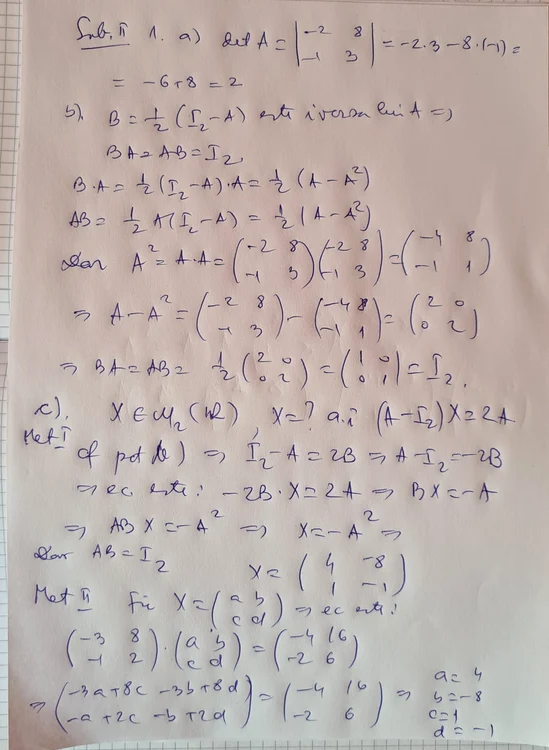 Sub. II 1. a) det A = | -2 8 | = -2·3-8·(-1) =
| -1 3 |
= -6+8 = 2
b). B = 1/2 (I₂-A) este inversa lui A =>
BA = AB = I₂
B·A = 1/2 (I₂-A)·A = 1/2 (A-A²)
AB = 1/2 A(I₂-A) = 1/2 (A-A²)
Dar A² = A·A = (-2 8 ; -1 3)(-2 8 ; -1 3) = (-4 8 ; -1 1)
=> A-A² = (-2 8 ; -1 3) - (-4 8 ; -1 1) = (2 0 ; 0 2)
=> BA = AB = 1/2 (2 0 ; 0 2) = (1 0 ; 0 1) = I₂.
c). X ∈ M₂(ℝ), X=? a.î (A-I₂)X = 2A
Met I
cf pct b) => I₂-A = 2B => A-I₂ = -2B
=> ec este: -2B·X = 2A => BX = -A
=> ABX = -A² => X = -A² =>
Dar AB = I₂ X = (4 -8 ; 1 -1)
Met II Fie X = (a b ; c d) => ec este:
(-3 8 ; -1 2)·(a b ; c d) = (-4 16 ; -2 6)
=> (-3a+8c -3b+8d ; -a+2c -b+2d) = (-4 16 ; -2 6) => a = 4
b = -8
c = 1
d = -1